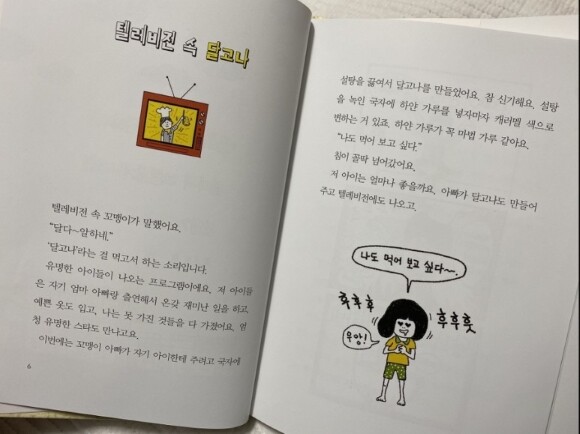 텔레비전 속 달고나
텔레비전 속 꼬맹이가 말했어요.
"달다~알하네."
'달고나'라는 걸 먹고서 하는 소리입니다.
유명한 아이들이 나오는 프로그램이에요. 저 아이들
은 자기 엄마 아빠랑 출연해서 온갖 재미난 일을 하고,
예쁜 옷도 입고, 나는 못 가진 것들을 다 가졌어요. 엄
청 유명한 스타도 만나고요.
이번에는 꼬맹이 아빠가 자기 아이한테 주려고 국자에
6
설탕을 끓여서 달고나를 만들었어요. 참 신기해요. 설탕
을 녹인 국자에 하얀 가루를 넣자마자 캐러멜 색으로
변하는 거 있죠. 하얀 가루가 꼭 마법 가루 같아요.
"나도 먹어 보고 싶다."
침이 꼴딱 넘어갔어요.
저 아이는 얼마나 좋을까요. 아빠가 달고나도 만들어
주고 텔레비전에도 나오고.
나도 먹어 보고 싶다~~.
후후훗
우앙!